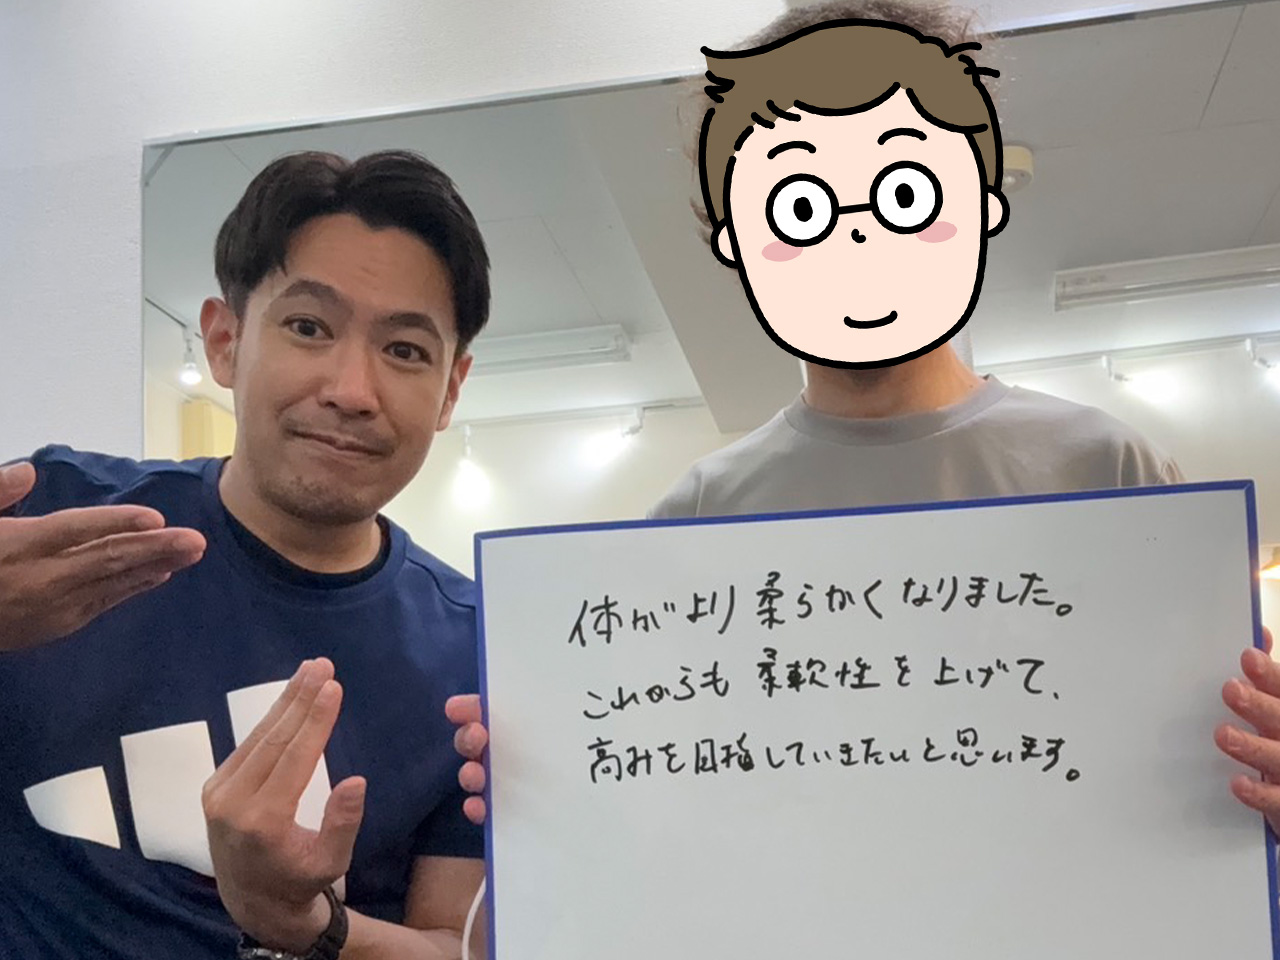 体がより柔らかくなりました。
これからも柔軟性を上げて、
高みを目指していきたいと思います。